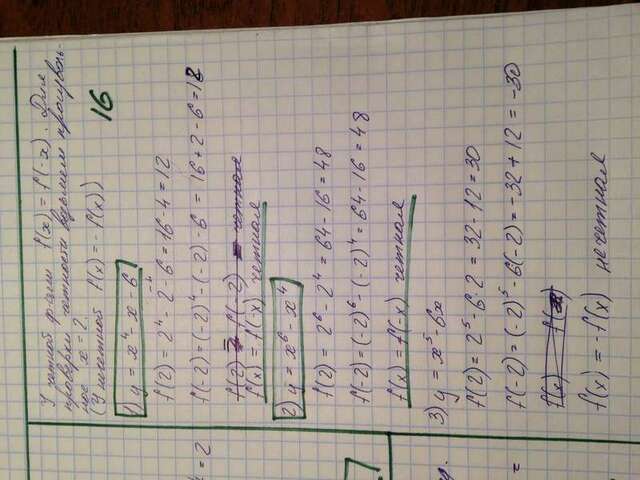 У четной ф-ции f(x) = f(-x). Для
проверки четности возьмем произволь-
ное x = 2.
(У нечетной f(x) = - f(x))
16
1) y = x⁴ - x - 6
f(2) = 2⁴ - 2 - 6 = 16 - 4 = 12
f(-2) = (-2)⁴ - (-2) - 6 = 16 + 2 - 6 = 12
f(x) = f(x) четная
2) y = x⁶ - x⁴
f(2) = 2⁶ - 2⁴ = 64 - 16 = 48
f(-2) = (-2)⁶ - (-2)⁴ = 64 - 16 = 48
f(x) = f(-x) четная
3) y = x⁵ - 6x
f(2) = 2⁵ - 6·2 = 32 - 12 = 30
f(-2) = (-2)⁵ - 6(-2) = -32 + 12 = -30
f(x) = - f(x) нечетная
= 2
=